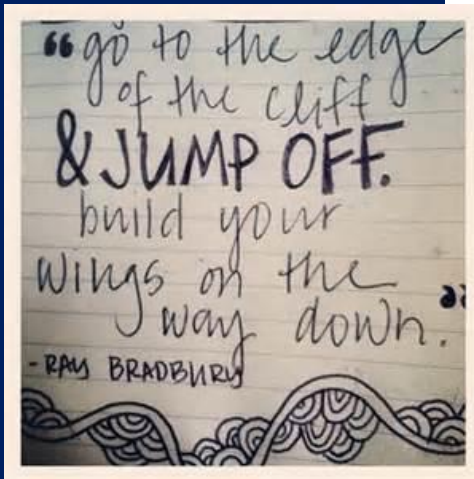 “go to the edge
of the cliff
& JUMP OFF.
build your
wings on the
way down.”
-RAY BRADBURY